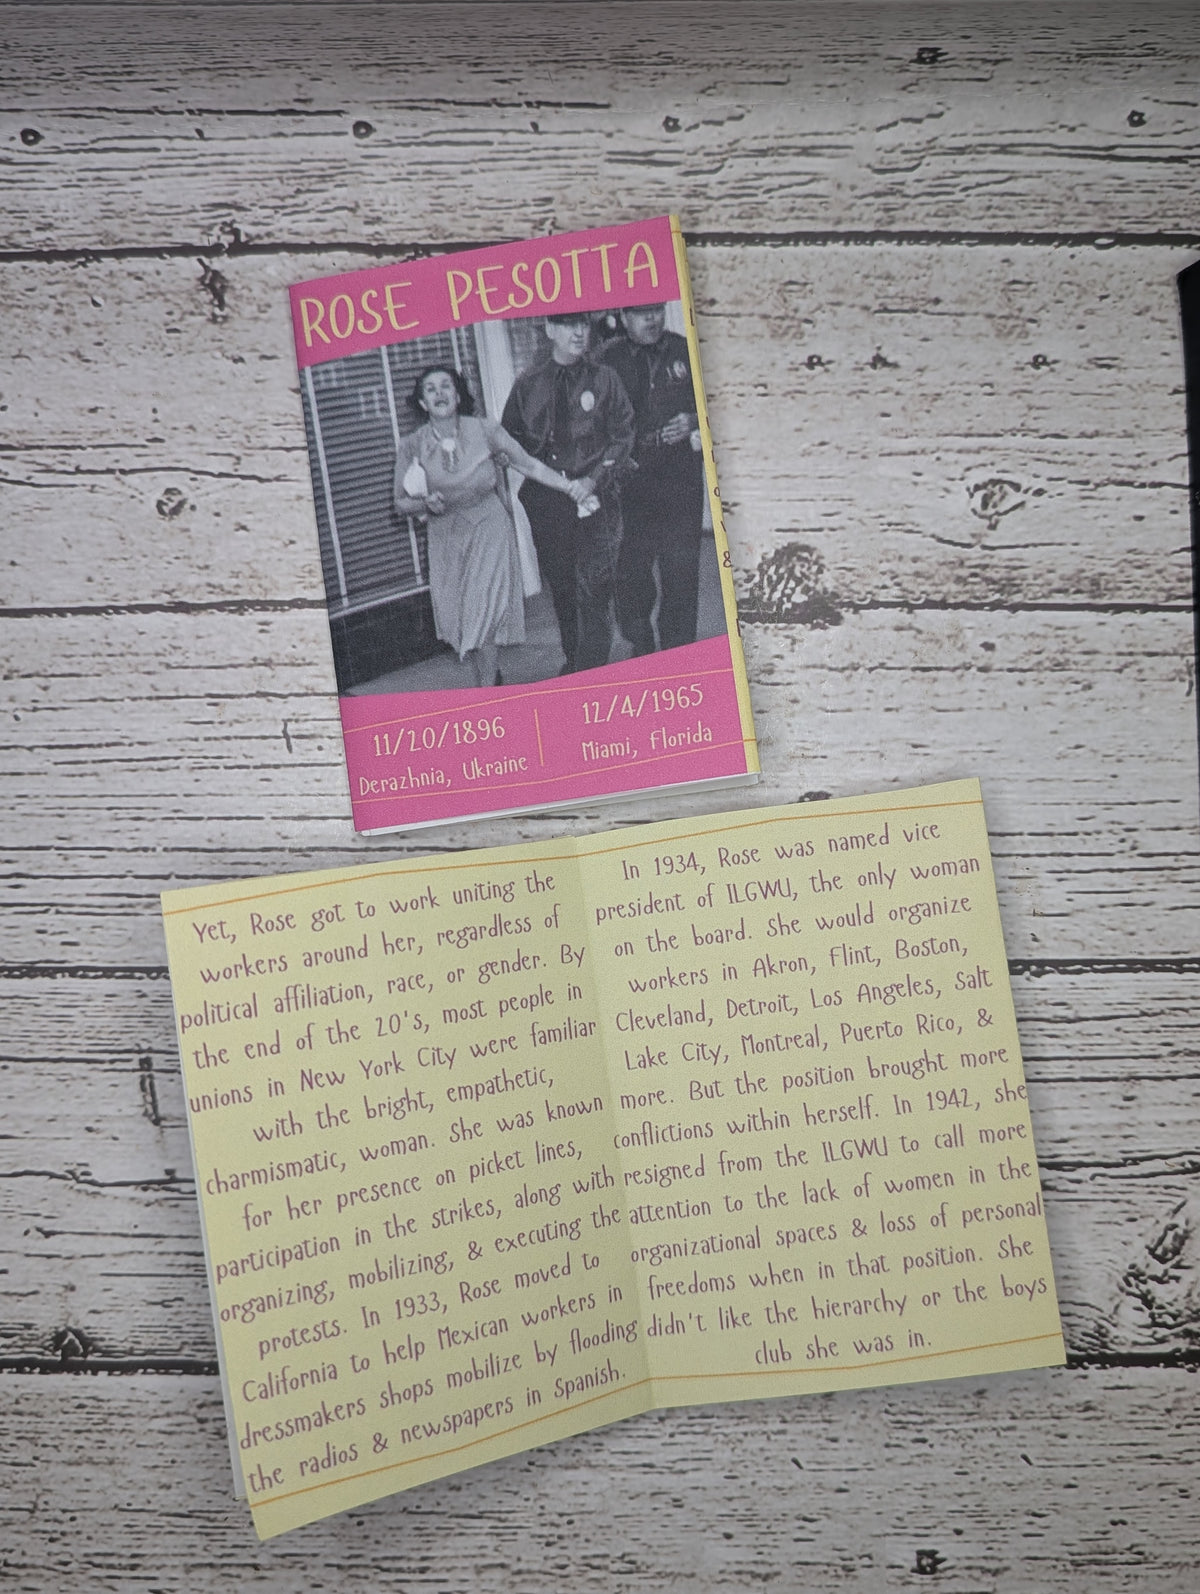 ROSE PESOTTA
11/20/1896
Derazhnia, Ukraine
12/4/1965
Miami, Florida
Yet, Rose got to work uniting the
workers around her, regardless of
political affiliation, race, or gender. By
the end of the 20's, most people in
unions in New York City were familiar
with the bright, empathetic,
charmismatic, woman. She was known
for her presence on picket lines,
participation in the strikes, along with
organizing, mobilizing, & executing the
protests. In 1933, Rose moved to
California to help Mexican workers in
dressmakers shops mobilize by flooding
the radios & newspapers in Spanish.
In 1934, Rose was named vice
president of ILGWU, the only woman
on the board. She would organize
workers in Akron, Flint, Boston,
Cleveland, Detroit, Los Angeles, Salt
Lake City, Montreal, Puerto Rico, &
more. But the position brought more
conflictions within herself. In 1942, she
resigned from the ILGWU to call more
attention to the lack of women in the
organizational spaces & loss of personal
freedoms when in that position. She
didn't like the hierarchy or the boys
club she was in.